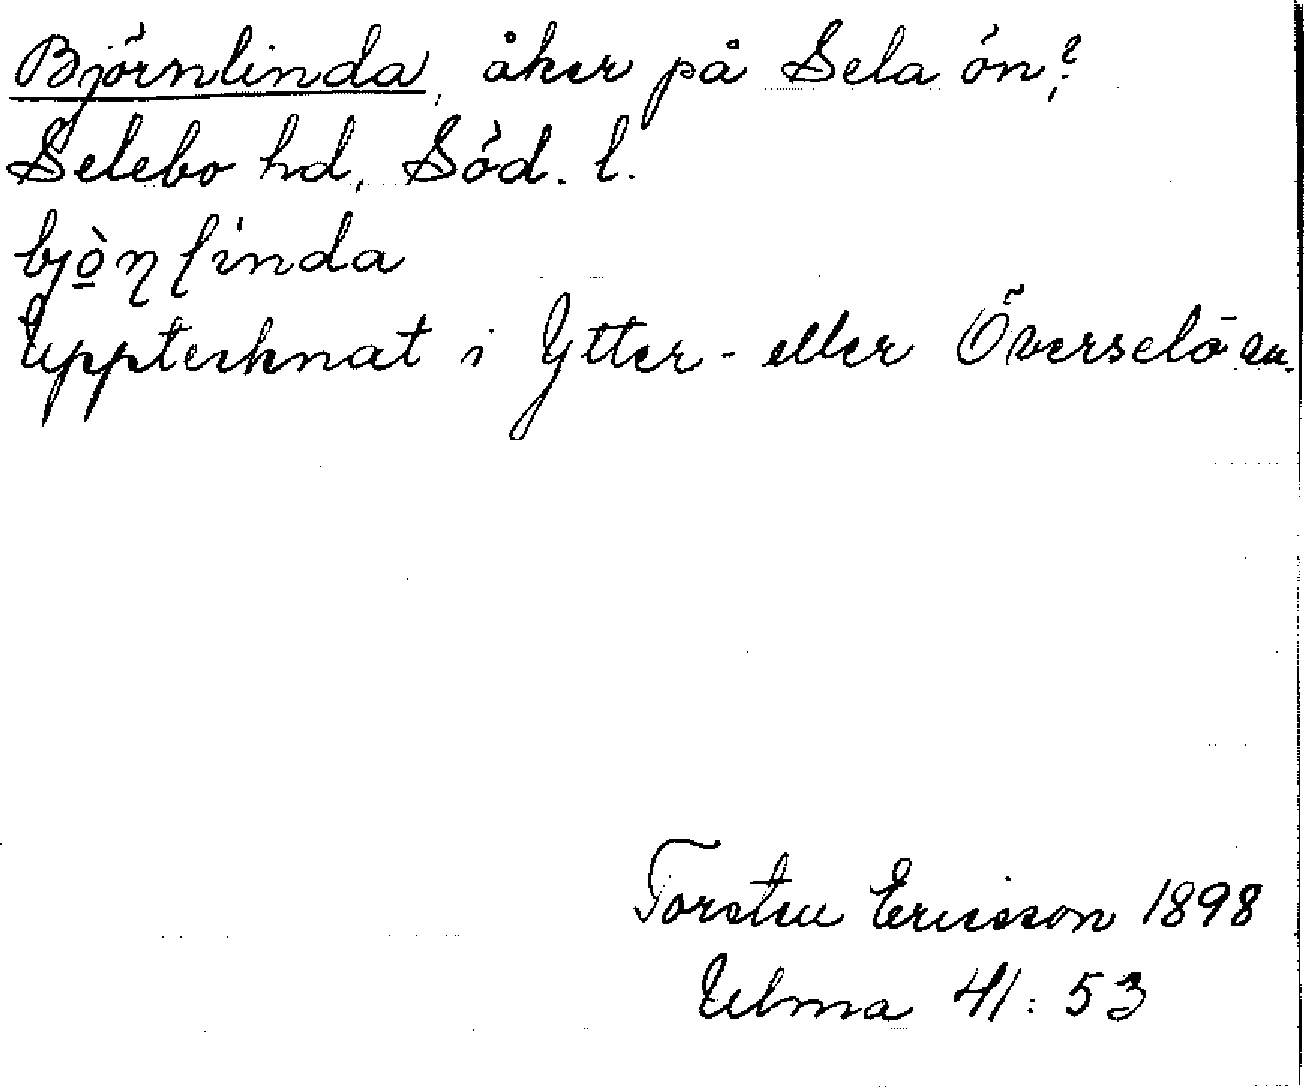 Björnlinda, åker på Sela ön?
Selebo hd, Söd. l.
bjò̲ɳ ɭinda
Upptecknat i Ytter- eller Överselö sn.
Torsten Ericsson 1898
Ulma 41:53